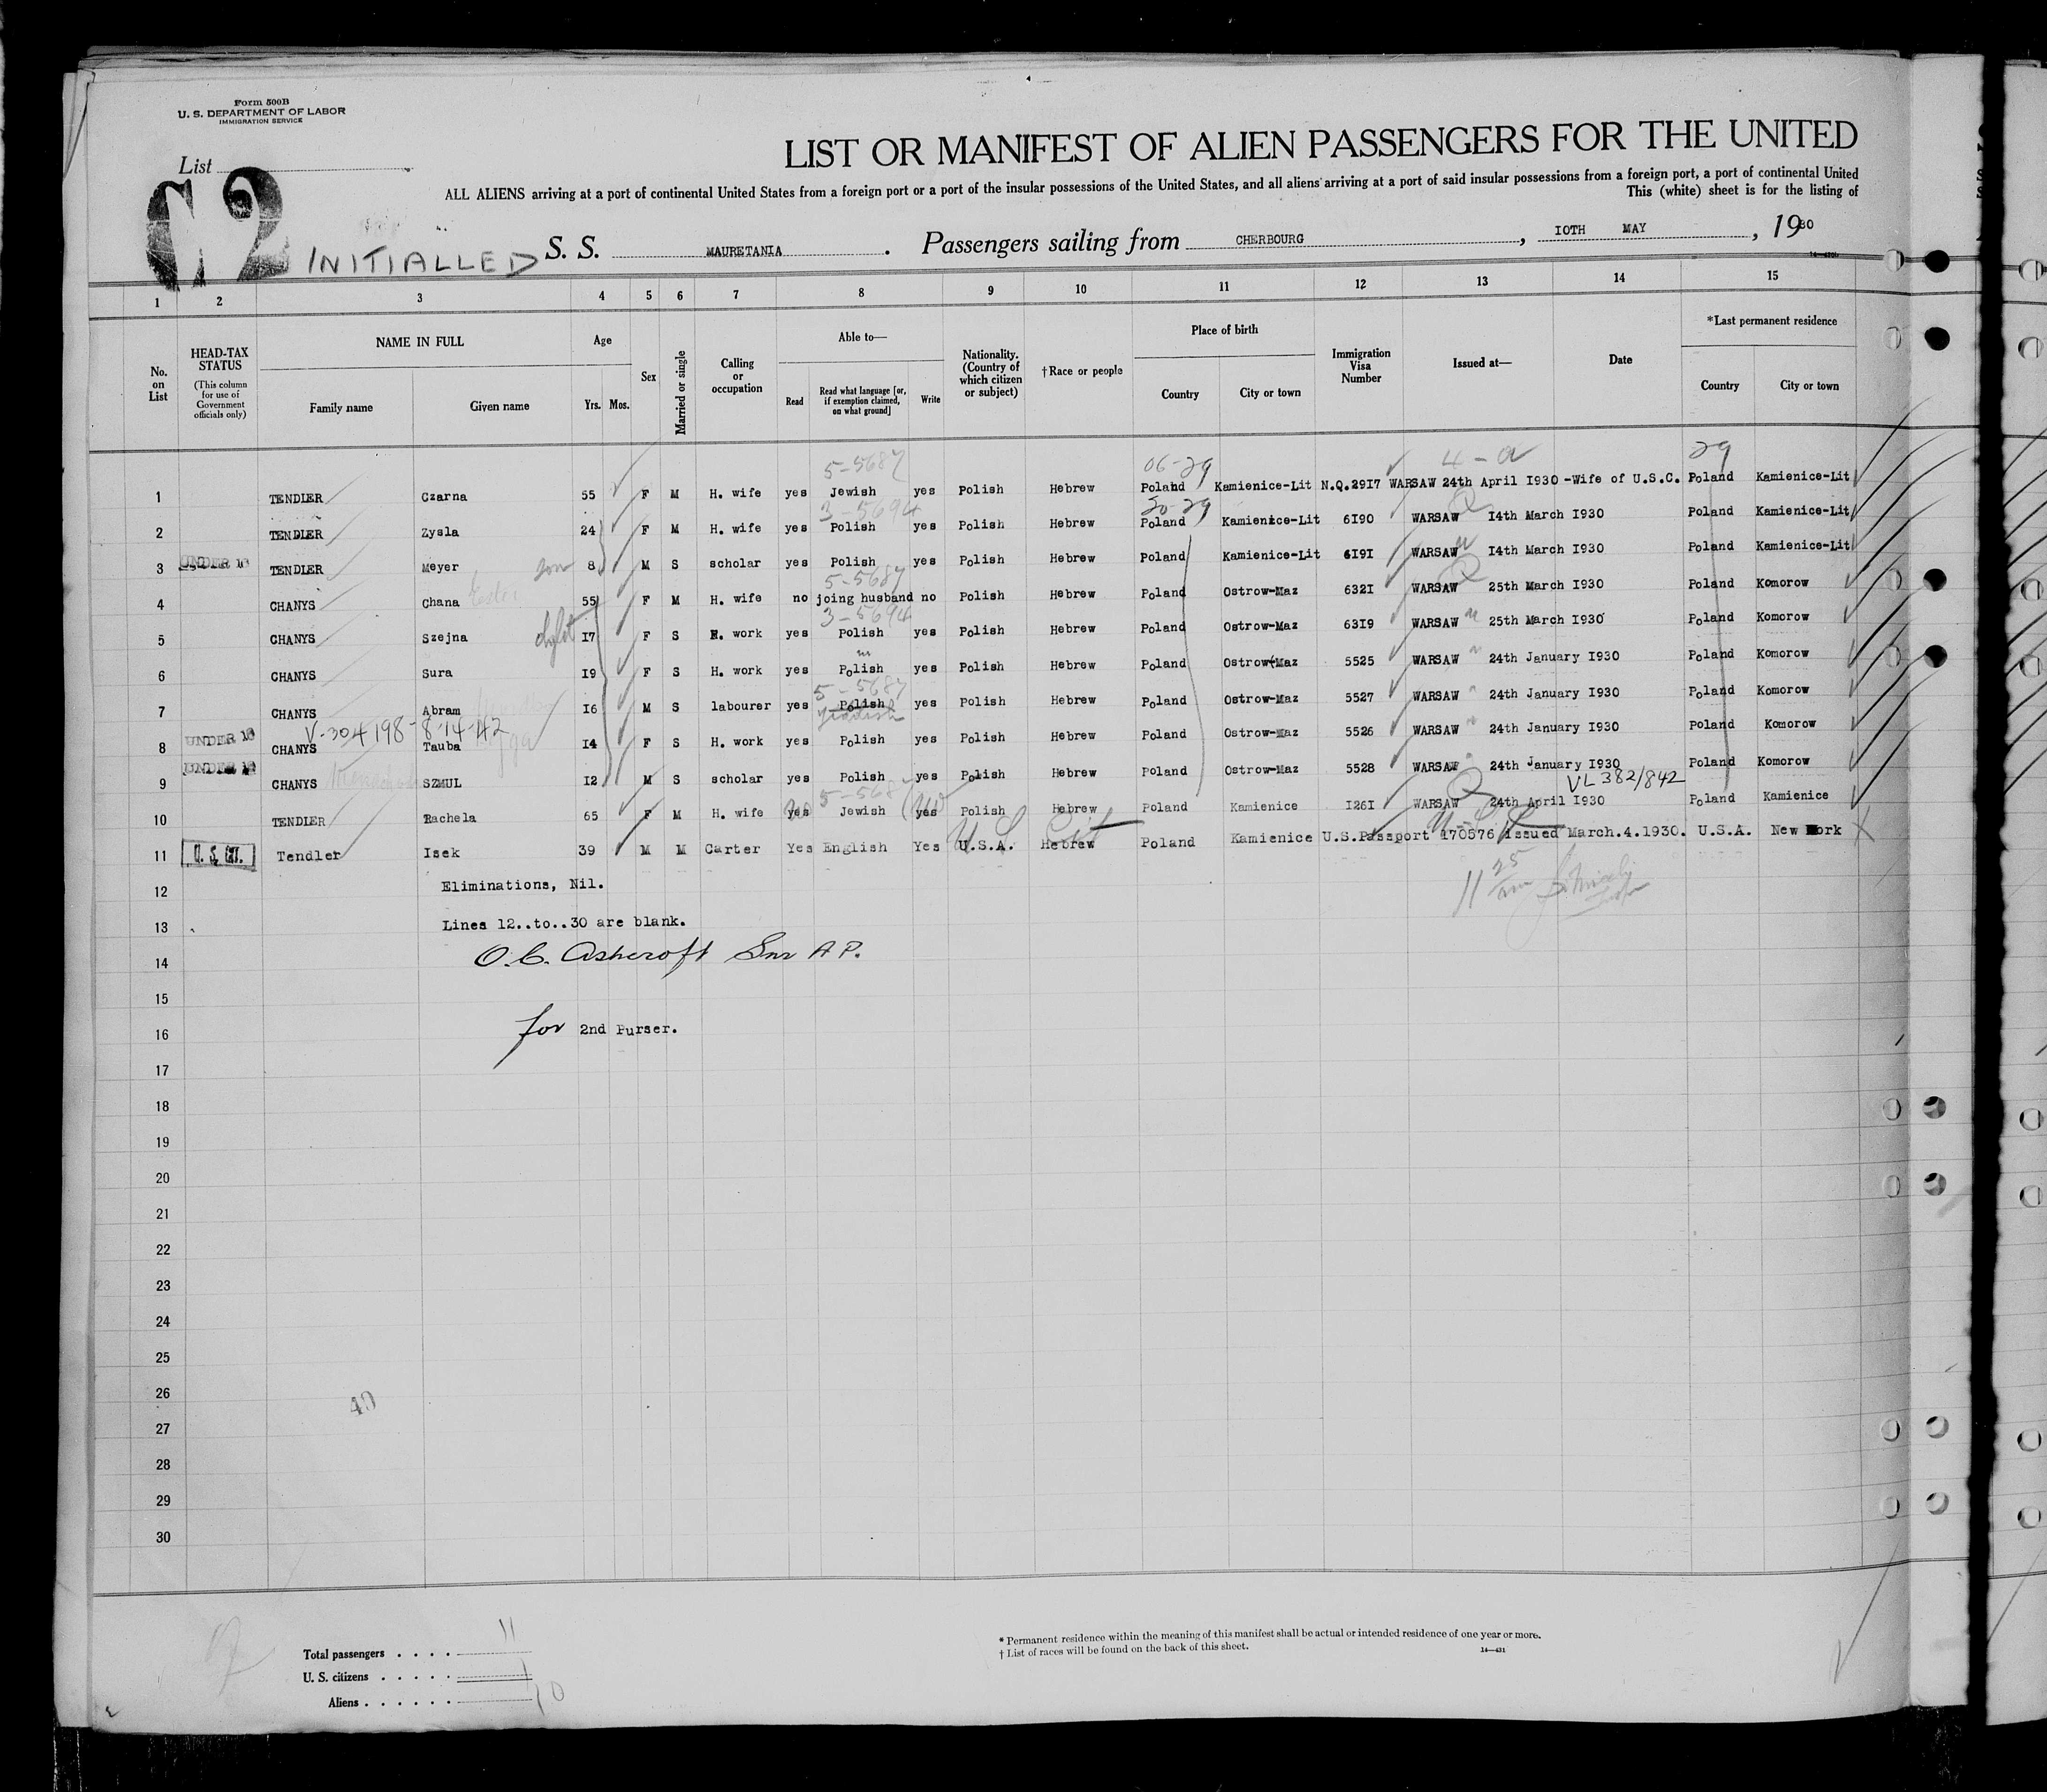 Form 500B
U. S. DEPARTMENT OF LABOR
IMMIGRATION SERVICE
List
C2
INITIALLED
LIST OR MANIFEST OF ALIEN PASSENGERS FOR THE UNITED
ALL ALIENS arriving at a port of continental United States from a foreign port or a port of the insular possessions of the United States, and all aliens arriving at a port of said insular possessions from a foreign port, a port of continental United
This (white) sheet is for the listing of
S. S. MAURETANIA. Passengers sailing from CHERBOURG, IOTH MAY, 1930
1 2 3 4 5 6 7 8 9 10 11 12 13 14 15
No. on List
HEAD-TAX STATUS (This column for use of Government officials only)
NAME IN FULL
Family name Given name
Age
Yrs. Mos.
Sex
Married or single
Calling or occupation
Able to—
Read
Read what language [or, if exemption claimed, on what ground]
Write
Nationality. (Country of which citizen or subject)
†Race or people
Place of birth
Country City or town
Immigration Visa Number
Issued at—
Date
*Last permanent residence
Country City or town
5-5687 06-29 4-a 29
1 TENDLER Czarna 55 F M H. wife yes Jewish yes Polish Hebrew Poland Kamienice-Lit N.Q.29I7 WARSAW 24th April I930 -Wife of U.S.C. Poland Kamienice-Lit
3-5694 30-29
2 TENDLER Zysla 24 F M H. wife yes Polish yes Polish Hebrew Poland Kamienice-Lit 6I90 WARSAW I4th March I930 Poland Kamienice-Lit
3 UNDER 16 TENDLER Meyer son 8 M S scholar yes Polish yes Polish Hebrew Poland Kamienice-Lit 6I9I WARSAW I4th March I930 Poland Kamienice-Lit
5-5687
4 CHANYS Chana 55 F M H. wife no joing husband no Polish Hebrew Poland Ostrow-Maz 632I WARSAW 25th March I930 Poland Komorow
3-5694
5 CHANYS Szejna I7 F S H. work yes Polish yes Polish Hebrew Poland Ostrow-Maz 63I9 WARSAW 25th March I930 Poland Komorow
6 CHANYS Sura I9 F S H. work yes Polish yes Polish Hebrew Poland Ostrow-Maz 5525 WARSAW 24th January I930 Poland Komorow
5-5687
7 CHANYS Abram I6 M S labourer yes Polish yes Polish Hebrew Poland Ostrow-Maz 5527 WARSAW 24th January I930 Poland Komorow
Yiddish
V-304198-8-14-42
8 UNDER 16 CHANYS Tauba I4 F S H. work yes Polish yes Polish Hebrew Poland Ostrow-Maz 5526 WARSAW 24th January I930 Poland Komorow
9 UNDER 16 CHANYS SZMUL I2 M S scholar yes Polish yes Polish Hebrew Poland Ostrow-Maz 5528 WARSAW 24th January I930 Poland Komorow
5-5687 VL 382/842
10 TENDLER Rachela 65 F M H. wife yes Jewish yes Polish Hebrew Poland Kamienice I26I WARSAW 24th April I930 Poland Kamienice
U S Cit
11 U. S. CIT. Tendler Isek 39 M M Carter Yes English Yes U.S.A. Hebrew Poland Kamienice U.S.Passport 170576 issued March.4.1930. U.S.A. New York
12 Eliminations, Nil.
11 25 am
13 Lines 12..to..30 are blank.
14 O. C. Ashcroft Snr A P.
15
16 for 2nd Purser.
17
18
19
20
21
22
23
24
25
26
40
27
28
29
30
Total passengers . . . . 11
U. S. citizens . . . . . 1
Aliens . . . . . . 10
* Permanent residence within the meaning of this manifest shall be actual or intended residence of one year or more.
† List of races will be found on the back of this sheet.
14—431